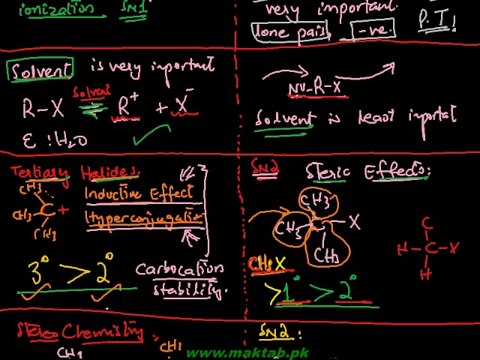 ionization SN1
very important
lone pair, -ve. P.T!
Solvent is very important
Solvent
R-X ⇌ R+ + X-
ε : H2O ✓
Nu-R-X
Solvent is least inportat
Tertiary Halides:
CH3
CH3 C+
CH3
Inductive Effect
Hyperconjugation
3° > 2°
Carbocation
stability.
SN2 Steric Effects:
CH3
CH3 C X
CH3
C
H C X
H
CH3X
>1° > 2°
Stereo Chemistry
CH3
CH3
SN2:
www.maktab.pk